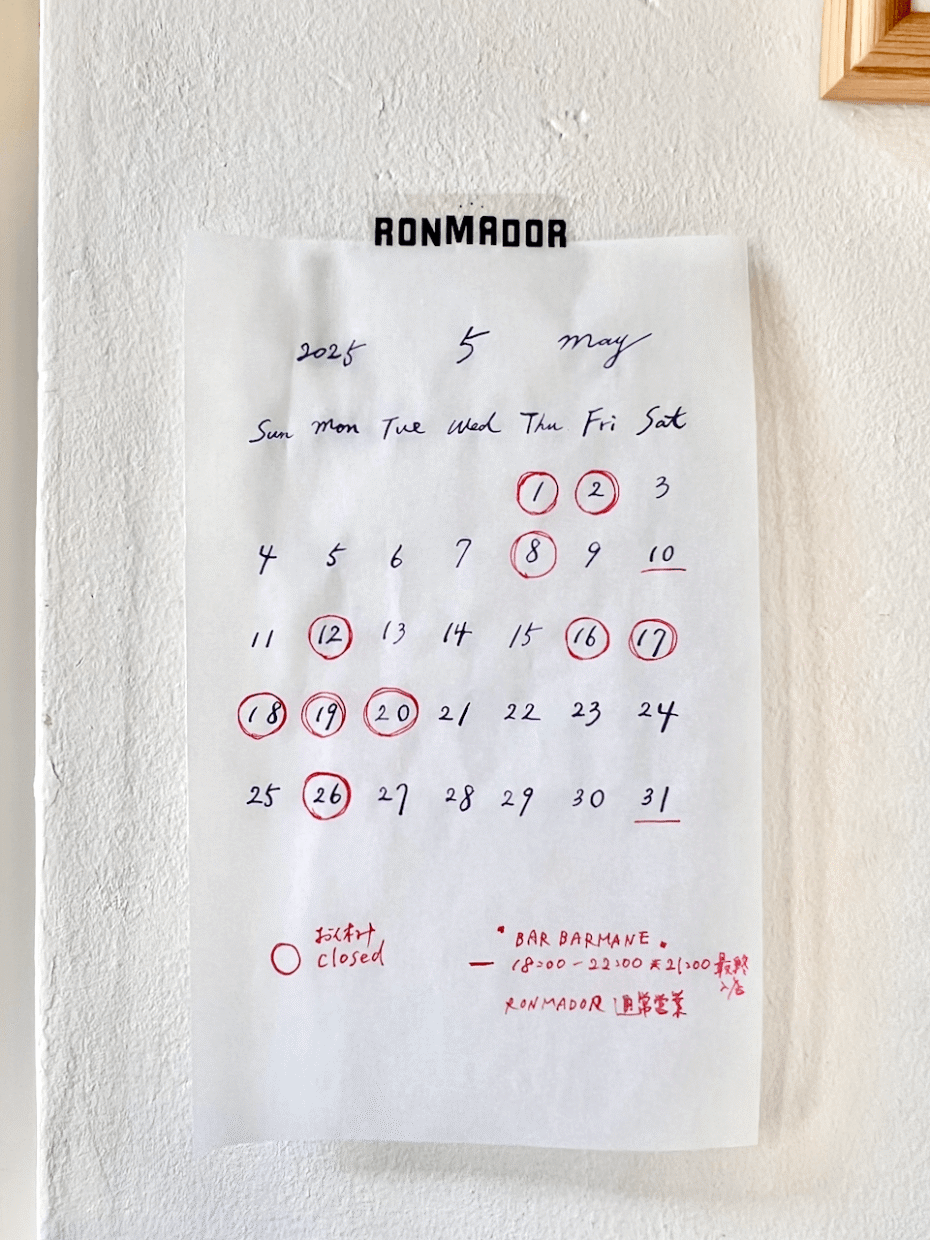 RONMADOR
2025 5 May
Sun Mon Tue Wed Thu Fri Sat
1 2 3
4 5 6 7 8 9 10
11 12 13 14 15 16 17
18 19 20 21 22 23 24
25 26 27 28 29 30 31
お休み
closed
"BAR BARMANE"
— 18:00-22:00 *21:00 最終
入店
RONMADOR 通常営業